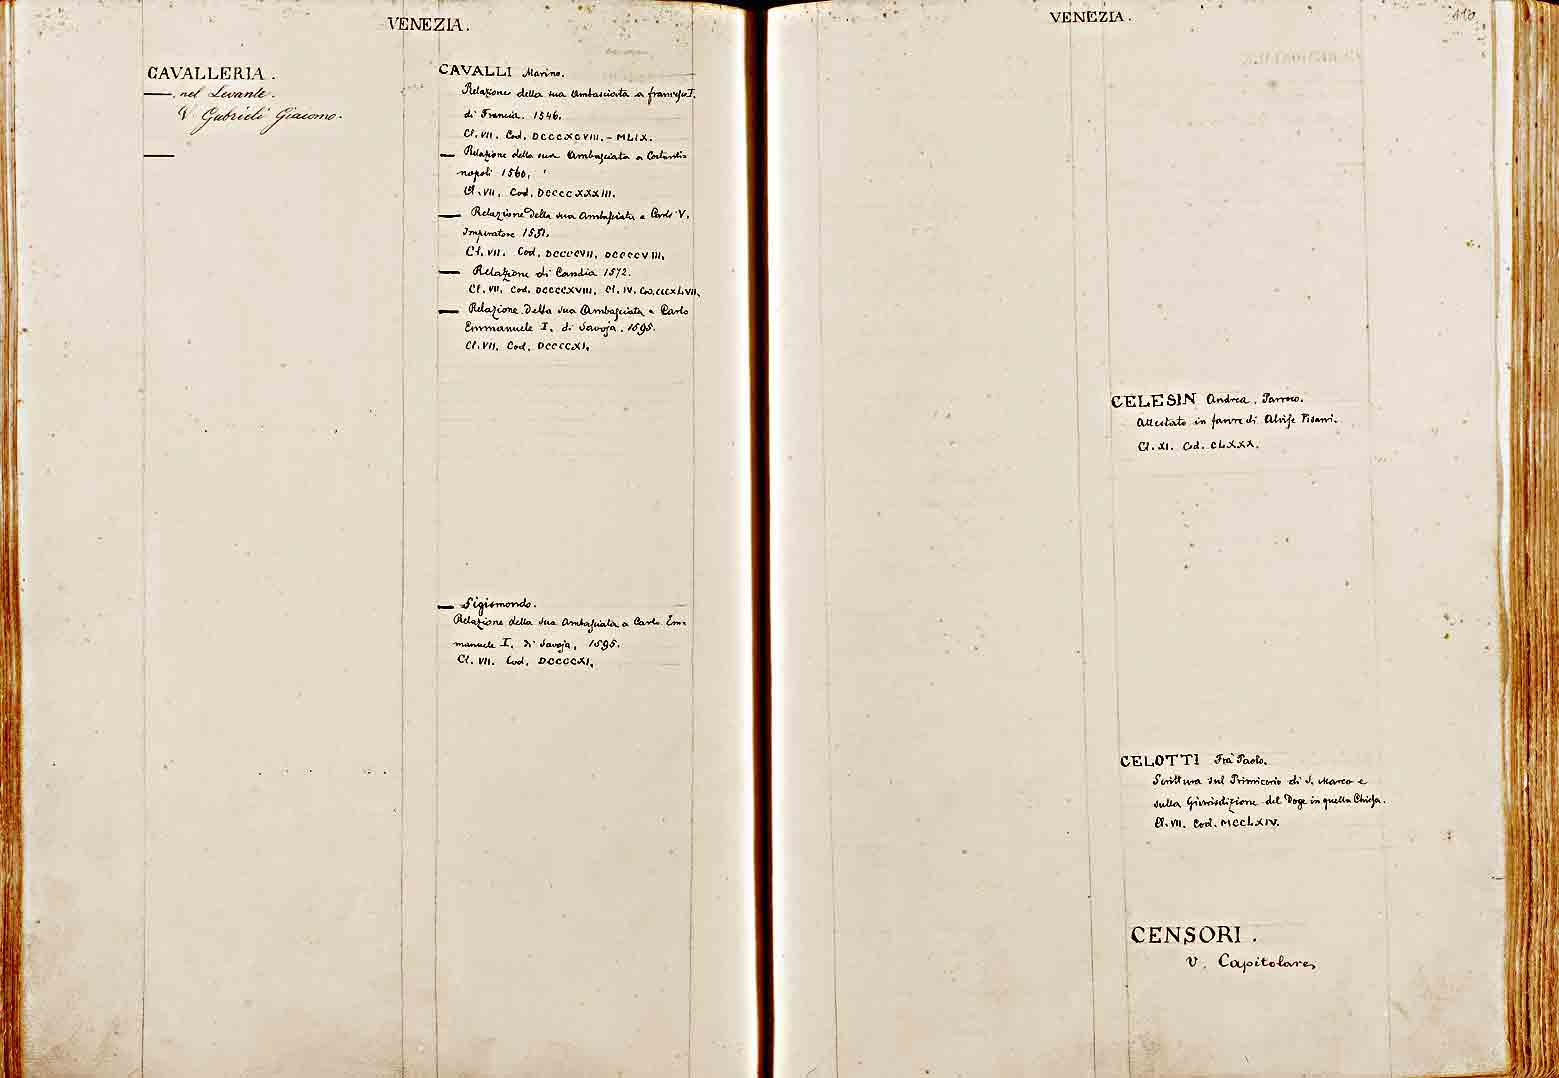 VENEZIA.
CAVALLERIA.
— . nel Levante.
V Gabrieli Giacomo.
—
CAVALLI Marino.
Relazione della sua Ambasciata a Francesco I.
di Francia. 1546.
Cl. VII. Cod. DCCCXCVIII. – MLIX.
— Relazione della sua Ambasciata a Costanti-
nopoli 1560.
Cl. VII. Cod. DCCCCXXXIII.
— Relazione della sua Ambasciata a Carlo V.
Imperatore 1551.
Cl. VII. Cod. DCCCCVII, DCCCCVIII,
— Relazione di Candia 1572.
Cl. VII. Cod. DCCCCXVIII, Cl. IV. Cod. CCCXLVII,
— Relazione della sua Ambasciata a Carlo
Emmanuele I. di Savoja. 1595.
Cl. VII. Cod. DCCCCXI,
— Sigismondo.
Relazione della sua Ambasciata a Carlo Em-
manuele I. di Savoja, 1595.
Cl. VII. Cod. DCCCCXI,
VENEZIA.
CELESIN Andrea, Parroco.
Attestato in favore di Alvise Pisani.
Cl. XI. Cod. CLXXX.
CELOTTI Fra Paolo.
Scrittura sul Primicerio di S. Marco e
sulla Giurisdizione del Doge in quella Chiesa.
Cl. VII. Cod. MCCLXIV.
CENSORI.
V. Capitolare,